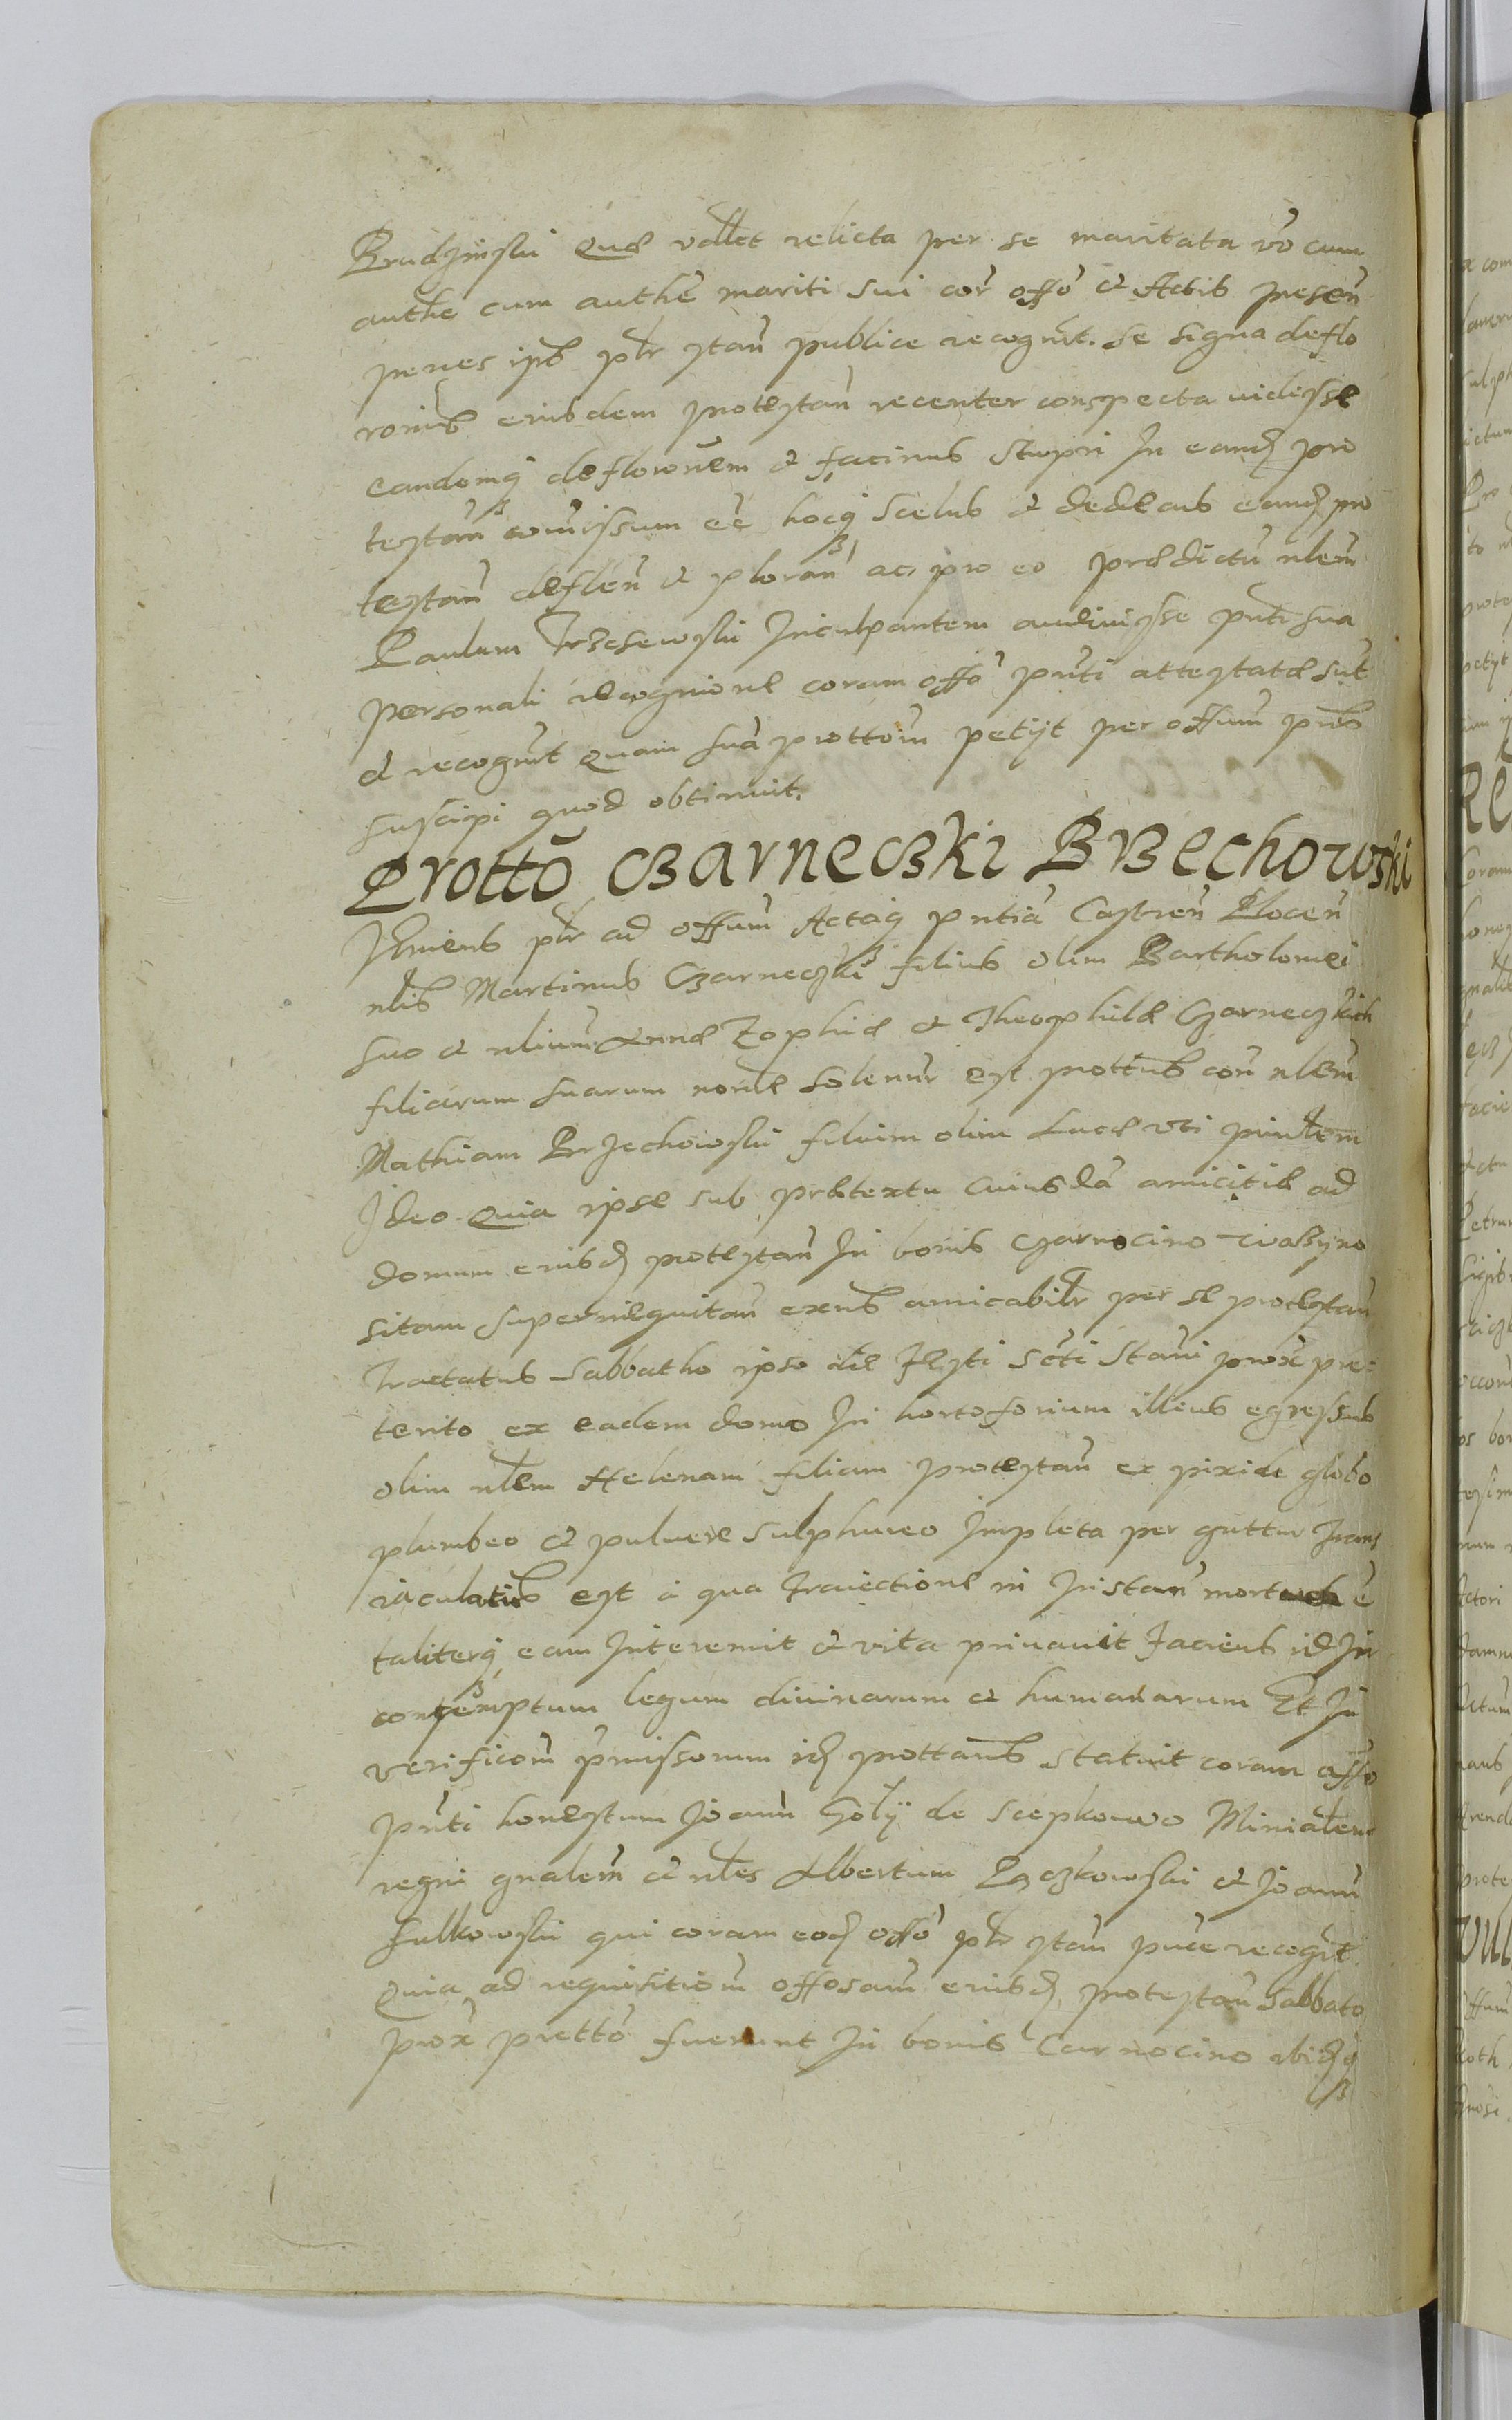 Brudzinski quæ vallet relicta per se maritata vo cum
authe cum authe mariti sui cor offo et Actis presen
penes ips pltr stan publice recognit. se signa deflo
ronis eiusdem protestan recenter conspecta uidisse
eandemq defloronem et facinus stupri In eand pro
testan comissum eē hocq scelus et dedecus eand pro
testan deflen et ploran ac pro eo prædictu nlem
Paulum Inculpantem audiuisse pnti sua
personali recognione coram offo pnti attestatæ sut
et recognit quam sua prottom petyt per offum pns
suscipi quod obtinuit.
Protto Czarneczki Brzechowski
Veniens pltr ad offum Actaq pntia Castren Plocen
nlis Martinus Czarneczki filius olim Bartholomei
suo et nlium Annæ Zophiæ et Theophilæ Czarneczkich
filiarum suarum noie solenr est prottus con nlem
Mathiam Brzechowski filium olim Lucæ uti prinlem
Ideo quia ipse sub prætextu cuiusda amicitiæ ad
domum eiusd protestan In bonis Czarnocino
sitam superueguitan exens amicabilr per se protestan
tractatus Sabbatho ipso die festi Scti Stani prox pre
terito ex eadem domo In hortoforium illius egressus
olim nlem Helenam filiam protestan ex pixide globo
plumbeo et puluere sulphureo Impleta per guttur trans
iaculatus est a qua traiectione in Instan mortua ē
taliterq eam Interemit et vita priuauit faciens id In
contemptum legum diuinarum et humanarum Et In
verificom pmissorum id prottans statuit coram offo
pnti honestum Joann Goly de Scepkowo Minialem
regni gnalem et nles Albertum Paczkowski et Joann
Sulkowski qui coram eod offo pltr stan puce recognt
Quia ad requisitiom offosam eiusd protestan Sabbato
prox pretto fuerunt In bonis Carnocino ibidq